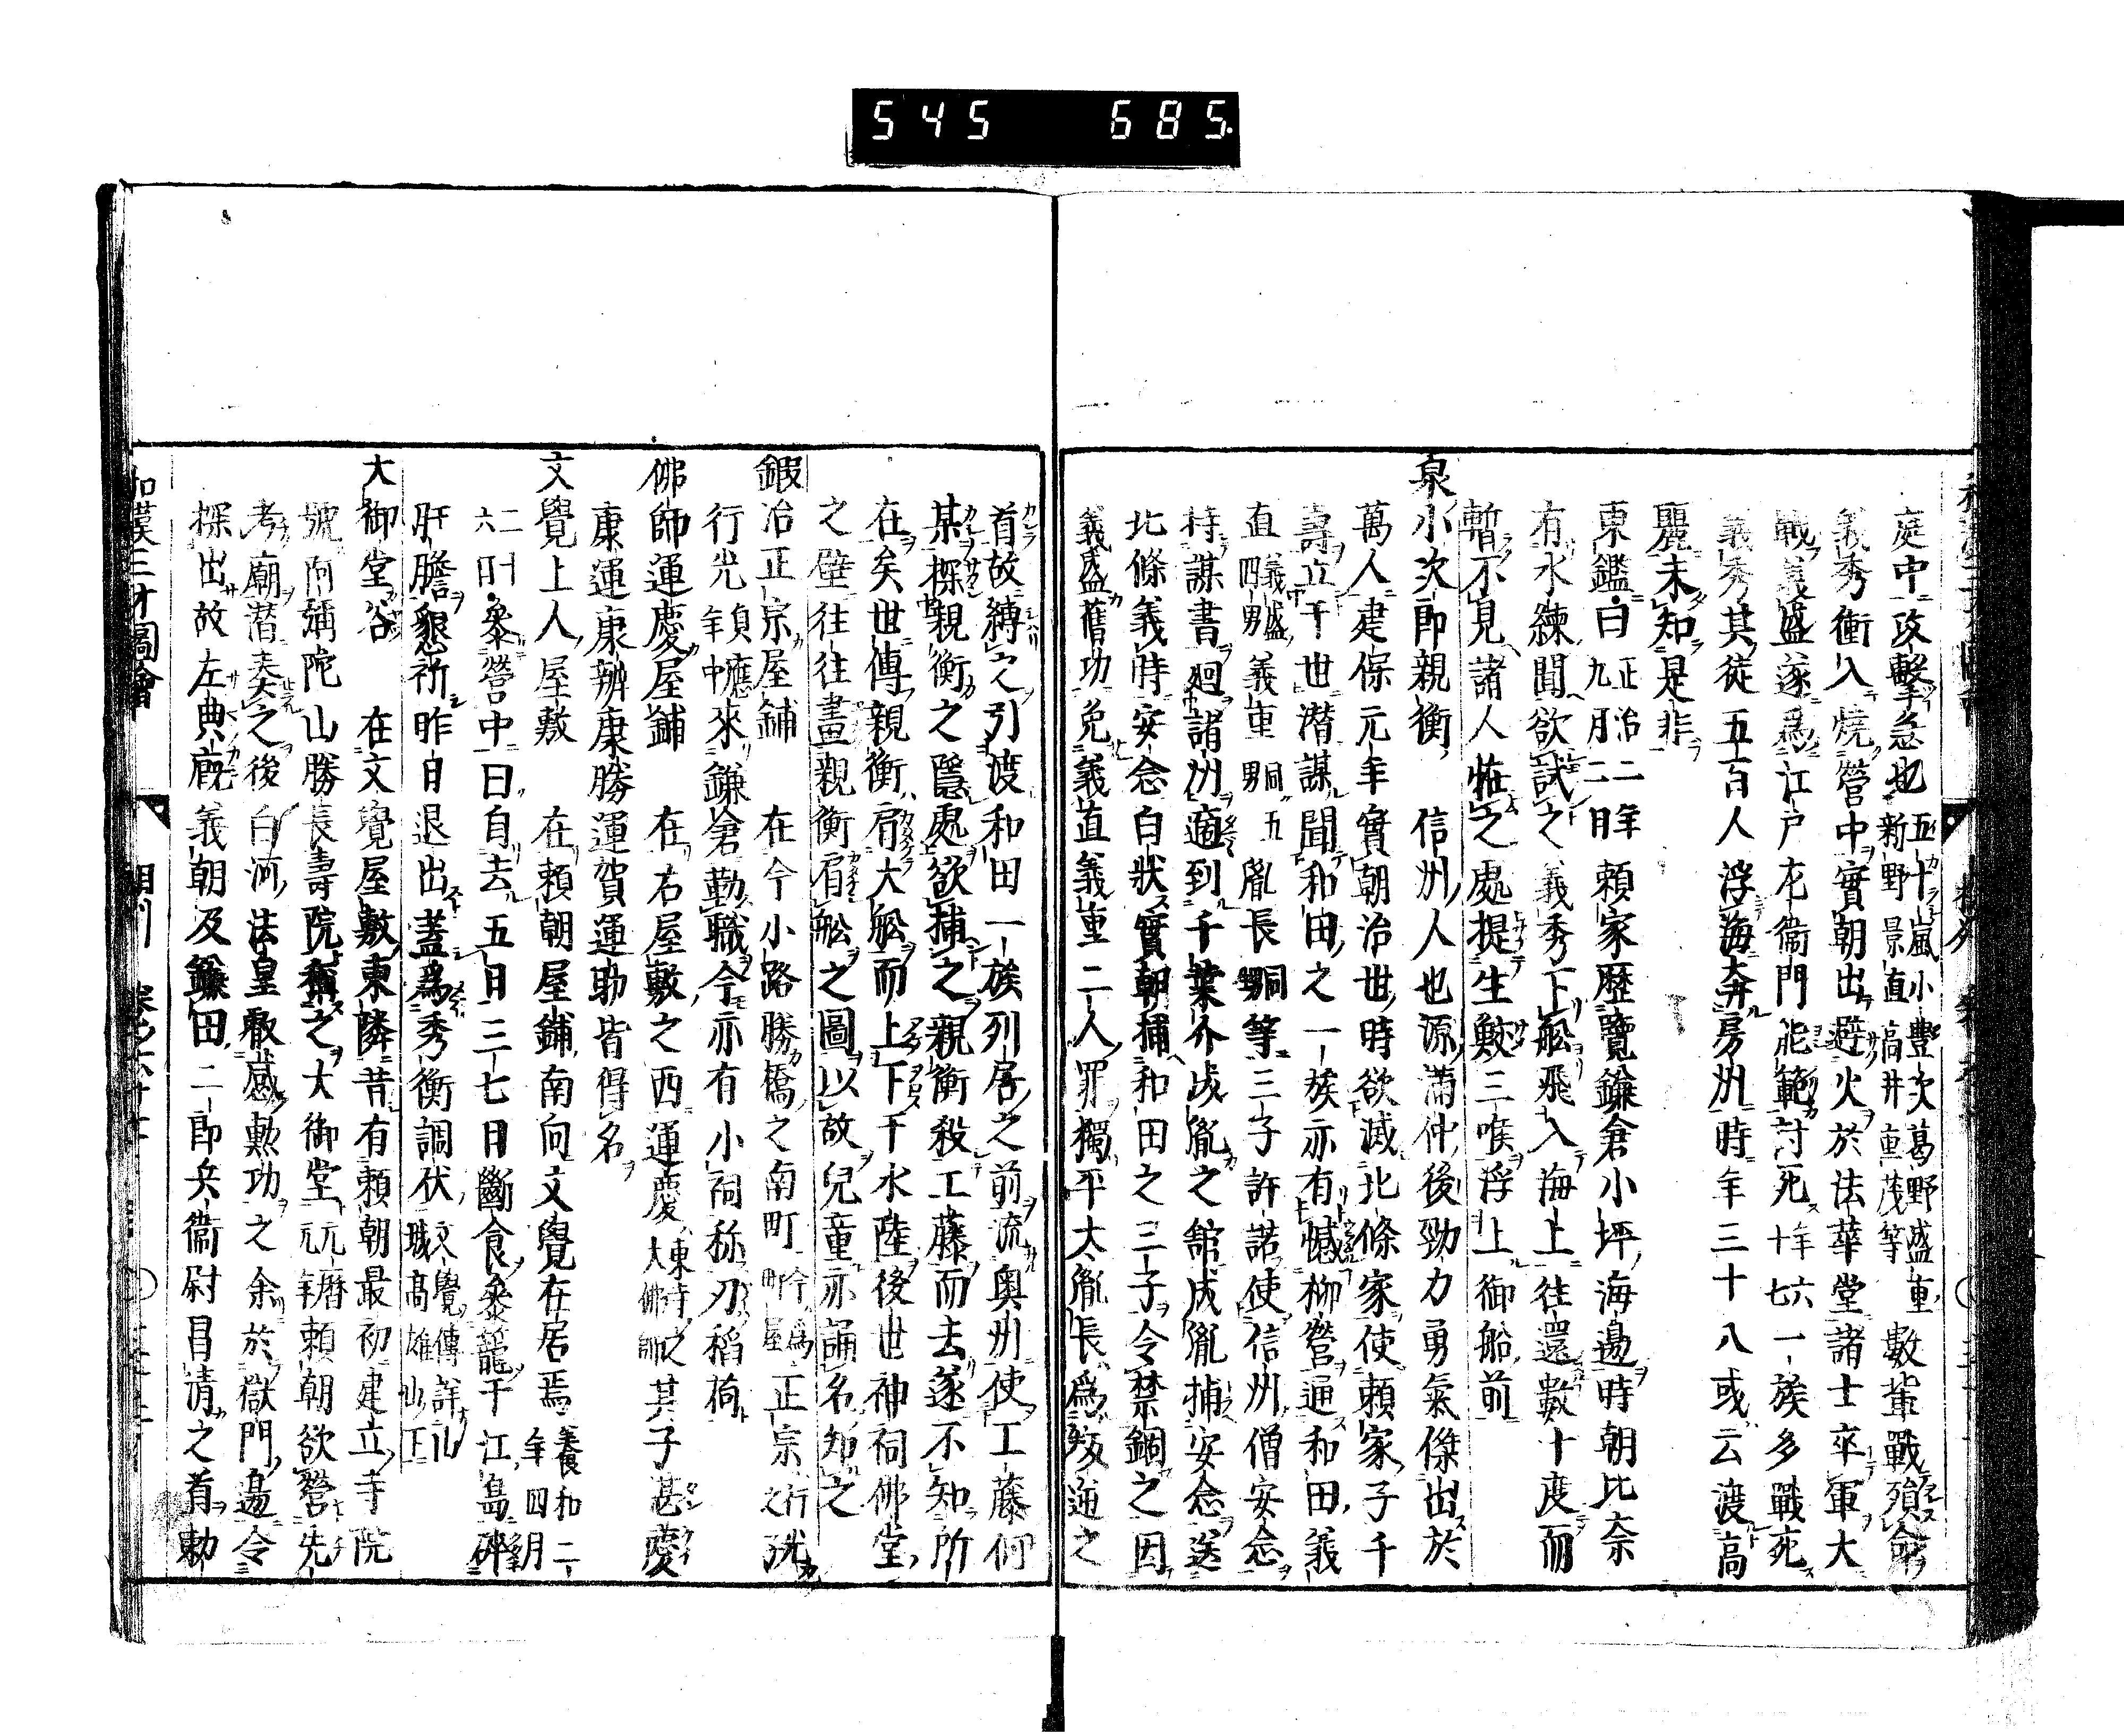 545 685
庭中攻擊急也五十嵐小豐次葛野盛重新野景直高井重茂等數輩戰殞命
義秀衝入燒營中實朝出避火於法華堂諸士卒軍大
戰義盛遂爲江戸左衞門能範討死年六十七一族多戰死
義秀其徒五百人浮海奔房州時年三十八或云渡高
麗未知是非
東鑑曰正治二年九月二日賴家歷覽鎌倉小坪海邊時朝比奈
有水練聞欲試之義秀下舩飛入海上往還數十度而
暫不見諸人恠之處提生鮫三喉浮上御船前
泉小次郎親衡 信州人也源滿仲後勁力勇氣傑出於
萬人建保元年實朝治世時欲滅北條家使賴家子千
壽立于世潜謀聞和田之一族亦有憾柳營通和田義
直義盛四男義重同五男胤長甥同等三子許諾使信州僧安念
持謀書廻諸州適到千葉介成胤之舘成胤捕安念送
北條義時安念白狀實朝捕和田之三子令禁錮之因
義盛舊功免義直義重二人罪獨平太胤長爲
首故縛之引渡和田一族列居之前流奥州使工藤何
某探親衡之隱處欲捕之親衡殺工藤而去遂不知所
在矣世傳親衡肩大舩而上下于水陸後世神祠佛堂
之壁往往畫親衡肩舩之圖以故兒童亦誦名知之
鍜冶正宗屋鋪 在今小路勝橋之南町今爲町屋正宗行光之
行光貞應年中來鎌倉勤職今亦有小祠称刃稻荷
佛師運慶屋鋪 在右屋敷之西運慶東寺之大佛師其子甚慶
康運康辨康勝運賀運助皆得名
文覺上人屋敷 在賴朝屋鋪南向文覺在居焉養和二年四月
二十六日參營中曰自去五日三七日斷食參籠于江島碎
肝膽懇祈昨日退出蓋爲秀衡調伏文覺傳詳山城高雄山下
大御堂谷 在文覺屋敷東隣昔有賴朝最初建立寺院
號阿彌陀山勝長壽院稱之大御堂元曆元年賴朝欲營先
考廟潜奏之後白河法皇敢感勲功之余於獄門邊令
探出故左典廐義朝及鎌田二郎兵衞尉目清之首勅
和漢三才圖會 相州